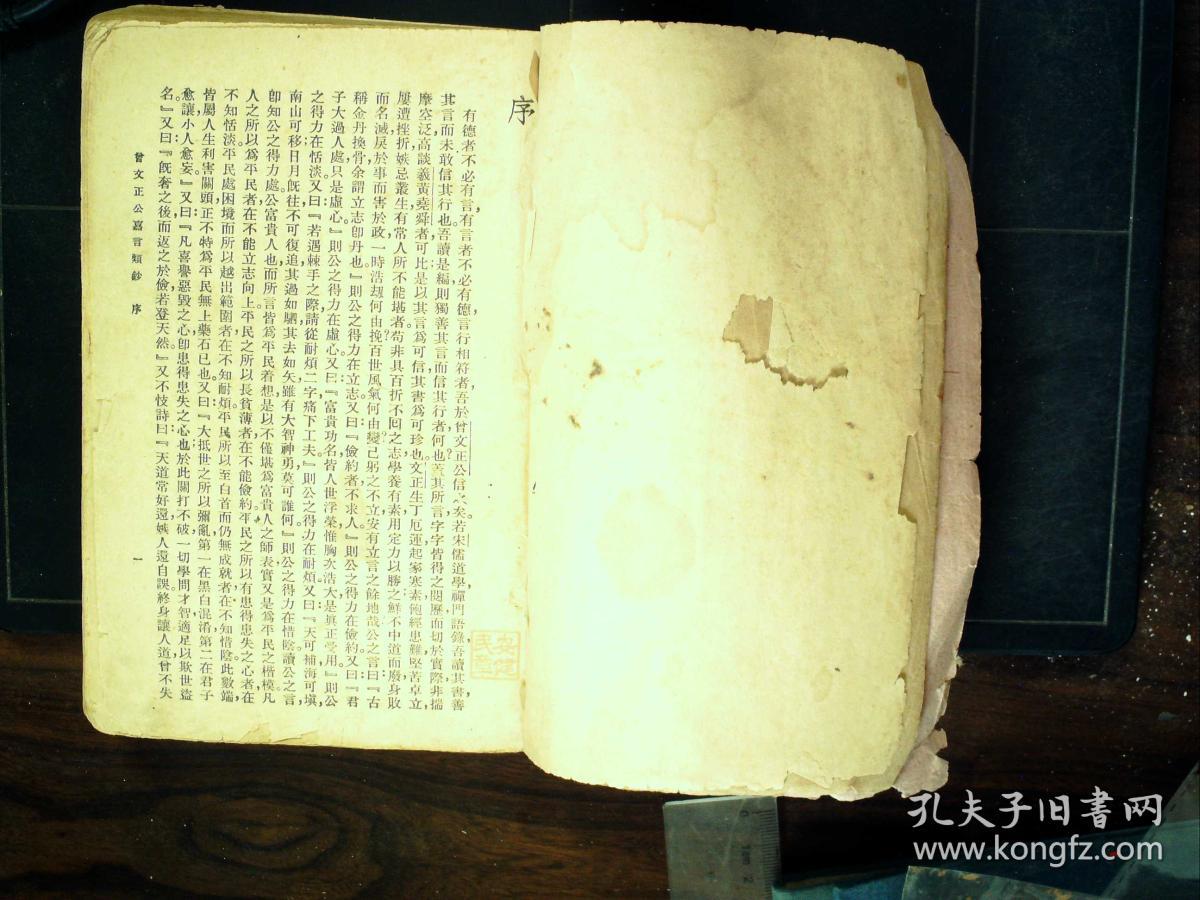 序
有德者不必有言,有言者不必有德,言行相符者,吾於曾文正公信之矣。若宋儒道學禪門語錄,吾讀其書,善
其言而未敢信其行也。吾讀是編,則獨善其言而信其行者,何也?蓋其所言字字皆得之閱歷,而切於實際,非揣
摩空泛,高談羲黃堯舜者可比,是以其言爲可信,其書爲可珍也。文正生丁厄運,起家寒素,飽經患難,堅苦卓立,
屢遭挫折,嫉忌叢生,有常人所不能堪者,苟非具百折不回之志,學養有素,用定力以勝之,鮮不中道而廢,身敗
而名滅,戾於事而害於政,一時浩劫何由挽?百世風氣何由變?己躬之不立,安有立言之餘地哉?公之言曰:『古
稱金丹換骨,余謂立志卽丹也』則公之得力在立志。又曰:『儉約者不求人』則公之得力在儉約。又曰:『君
子大過人處,只是虛心』則公之得力在虛心。又曰:『富貴功名,皆人世浮榮,惟胸次浩大是眞正受用』則公
之得力在恬淡。又曰:『若遇棘手之際,請從耐煩二字痛下工夫』則公之得力在耐煩。又曰:『天可補,海可塡,
南山可移,日月旣往,不可復追,其過如駟,其去如矢,雖有大智神勇,莫可誰何』則公之得力在惜陰。讀公之言,
卽知公之得力處。公富貴人也,而所言皆爲平民着想,是以不僅堪爲富貴人之師表,實又是爲平民之楷模。凡
人之所以爲平民者,在不能立志向上,平民之所以長貧薄者,在不能儉約,平民之所以有患得患失之心者,在
不知恬淡,平民處困境而所以越出範圍者,在不知耐煩,平民所以至白首而仍無成就者,在不知惜陰,此數端,
皆屬人生利害關頭,正不特爲平民無上藥石已也。又曰:『大抵世之所以彌亂,第一在黑白混淆,第二在君子
愈讓,小人愈妄』又曰:『凡喜譽惡毀之心,卽患得患失之心也,於此關打不破,一切學問才智適足以欺世盜
名』又曰:『旣奢之後,而返之於儉,若登天然』又不忮詩曰:『天道常好還,嫉人還自誤。終身讓人道,曾不失
曾文正公嘉言類鈔 序 一
孔夫子旧書网
www.kongfz.com